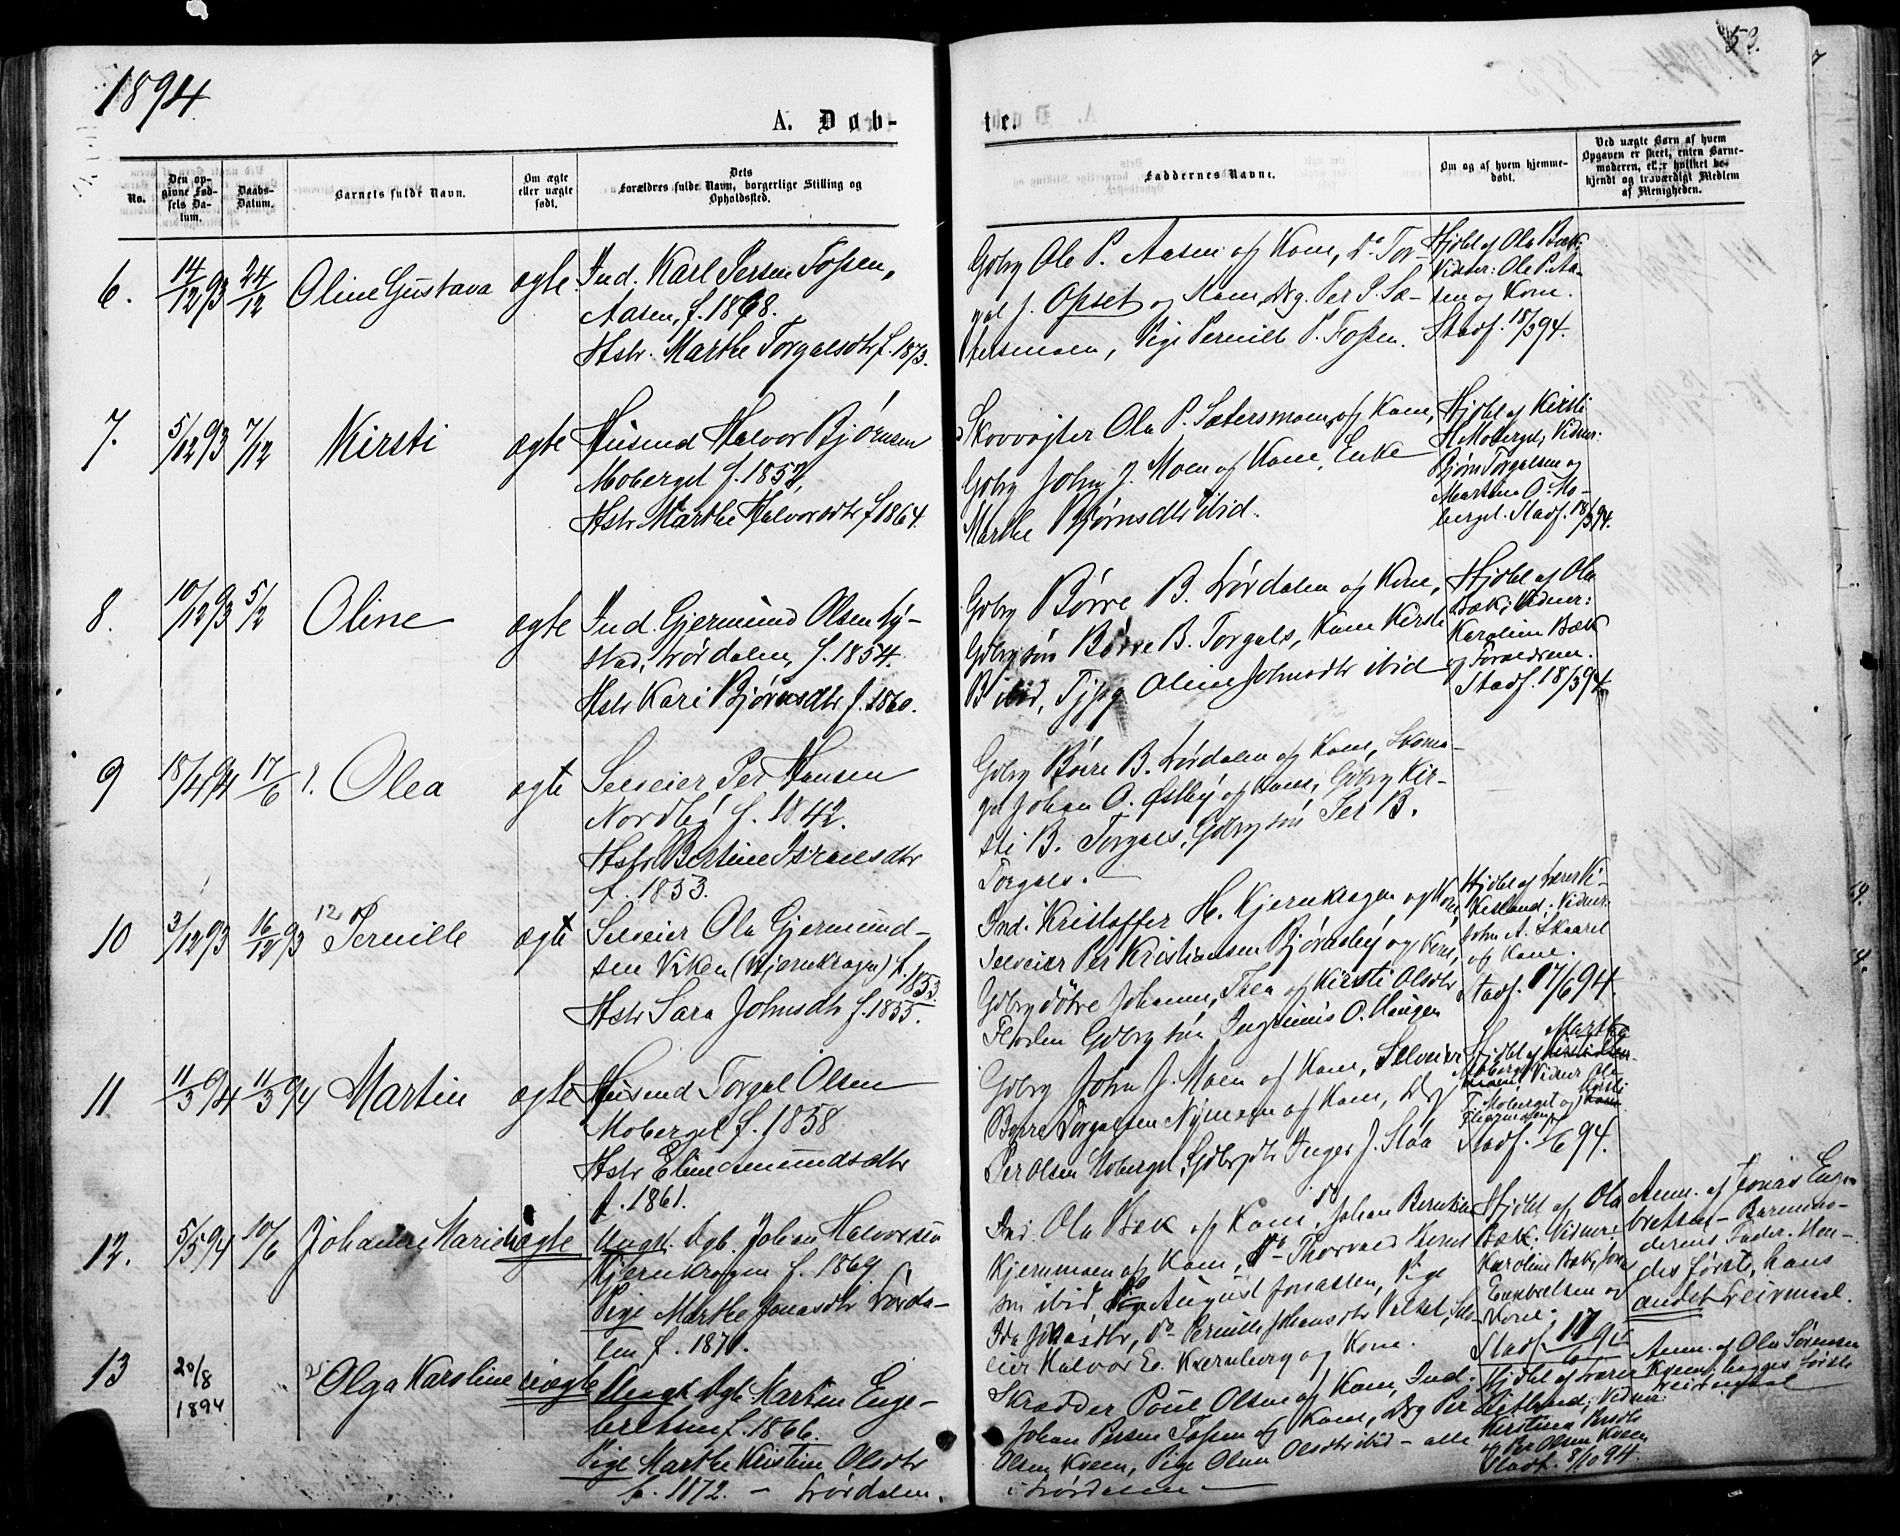 1894
53.
A. Døb-
te.
No.
Den op-
givne Fød-
sels Da-
tum.
Daabs-
Datum.
Barnets fulde Navn.
Om ægte
eller uægte
født.
Dets
Forældres fulde Navn, borgerlige Stilling og
Opholdssted.
Faddernes Navne.
Om og af hvem hjemme-
døbt.
Ved uægte Børn af hvem
Opgaven er skeet, enten Barne-
moderen, eller hvilket be-
kjendt og troværdigt Medlem
af Menigheden.
6.
14/12 93
24/12
Oline Gustava
ægte
Ind. Karl Persen Fossen,
Aasen, f. 1868.
Hstr. Marthe Torgalsdtr f. 1873.
Gdbrg Ole P. Aasen og Kone, Do Tor-
gal J. Opset og Kone, Ug. Per P. Sæ-
tersmoen, Pige Pernille P. Fossen.
Hjdbt af Ola Bæk.
Vidner: Ole P. Aa-
sen og Kone.
Stadf. 18/3 94.
7.
5/12 93
7/12
Kirsti
ægte
Husmd Halvor Bjørnsen
Moberget f. 1852,
Hstr Marthe Halvorsdtr f 1864.
Skovvogter Ola P. Sætersmoen og Kone,
Gdbrg John J. Moen og Kone, Enke
Marthe Bjørnsdtr ibid.
Hjdbt af Kirsti
H. Moberget; Vidner:
Bjørn Torgalsen og
Marthe O. Mo-
berget. Stadf. 18/3 94.
8.
10/12 93
5/2
Oline
ægte
Ind. Gjermund Olsen Ny-
stad, Lørdalen, f. 1854.
Hstr Kari Bjørnsdtr f. 1860.
Gdbrg Børre B. Lørdalen og Kone,
Gdbrgsøn Børre B. Torgals, Kone Kirsti
B ibid, Tjpg Oline Johnsdtr ibid
Hjdbt af Ola
Bæk; Vidner:
Karoline Bæk
og Forældrene.
Stadf. 18/3 94.
9
18/4 94
17/6
1. Olea
ægte
Selveier Per Hansen
Nordby f. 1842.
Hstr Bertine Israelsdtr
f. 1853.
Gdbrg Børre B. Lørdalen og Kone, Skoma-
ger Johan O. Østby og Kone, Gdbrg Kir-
sti B. Torgals, Gdbrgsøn Per B.
Torgals.
10
3/12 93
16/12 93
12 Pernille
ægte
Selveier Ola Gjermund-
sen Viken (Kjernkragen) f. 1853
Hstr Sara Johnsdtr f. 1855.
Ind. Kristoffer H. Kjernkragen og Kone,
Selveier Per Kristiansen Bjørnsby og Kone,
Gdbrgdøtre Johanne, Thea og Kirsti Olsdtr
Floden Gdbrgsøn Ingrinius O. Haugen
Hjdbt af Lærer Ki-
Vidner:
John A. Skaaret
og Kone.
Stadf. 17/6 94.
11
11/3 94
11/3 94
Martin
ægte
Husmd Torgal Olsen
Moberget f. 1858
Hstr Eline Amundsdtr
f. 1861.
Gdbrg John J. Moen og Kone, Selveier
Børre Torgalsen Nymoen og Kone, Ug
Per Olsen Moberget, Gdbrgdtr Inger J. Støa
Hjdbt af Marthe
Moberget, Vidner Ole
T. Moberget og Kirsti
Stadf. 17/6 94.
12.
5/5 94
10/6
Johanne Marie
uægte
Ungk. Dgb. Johan Halvorsen
Kjernkragen f. 1869.
Pige Marthe Jonasdtr Lørda-
len f. 1871.
Ind. Ola Bæk og Kone, Do Johan Berntsen
Kjernmoen og Kone, Do Thorvald Bernt
sen ibid, August Jonassen, Pige
Ida Jonasdtr, Do Pernille Johansdtr, Selv-
eier Halvor E. Kværnberg og Kone.
Hjdbt af Ola
Bæk. Vidner:
Karoline Bæk, Jonas
Engebretsen og
Kone.
Stadf. 17/6 94
Anm. af Jonas Enge-
bretsen - Barnemo-
derens Fader. Hen-
des første, hans
andet Leiermaal.
13
20/8
1894
Olga Karoline
uægte
Ungk Dgb Martin Enge-
bretsen f. 1866.
Pige Marthe Kristine Olsdtr
f. 1872. - Lørdalen.
Skrædder Poul Olsen og Kone, Ind.
Johan Persen Fossen og Kone, Ug Per
Olsen Kveen, Pige Oline Olsdtr ibid - alle
i Lørdalen
Hjdbt af Lærer
Vidner:
Kirstine Persdtr
og Per Olsen Kveen
Stadf. 8/10 94.
Anm. af Ola Sørensen
Kveen, begges første
Leiermaal